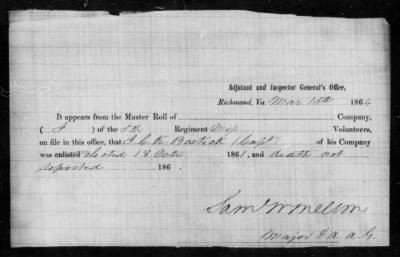 Adjutant and Inspector General's Office,
Richmond, Va. Mar 16th 1864
It appears from the Muster Roll of Company,
( I ) of the 5th Regiment Miss Volunteers,
on file in this office, that J. C. K. Bostick (Capt) of his Company
was enlisted elected 18 Octr 1861, and death not
reported 186 .
Saml W Melton
Major & A. A. G.